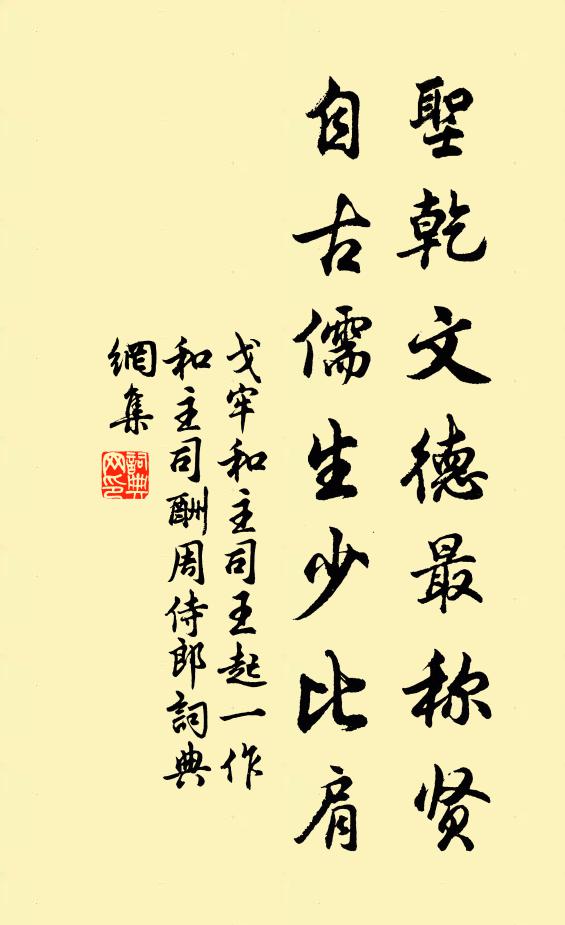 聖乾文德最称贤
自古儒生少比肩
戈牢和主司王起一作
和主司酬周侍郎詞典
網集
詞典网印